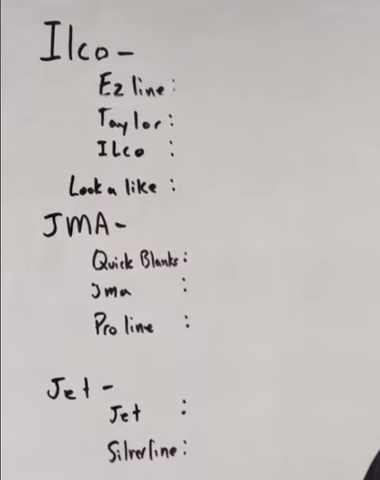 Ilco-
Ez line:
Taylor:
ILco :
Look a like :
JMA-
Quick Blanks:
Jma :
Pro line :
Jet-
Jet :
Silverline: